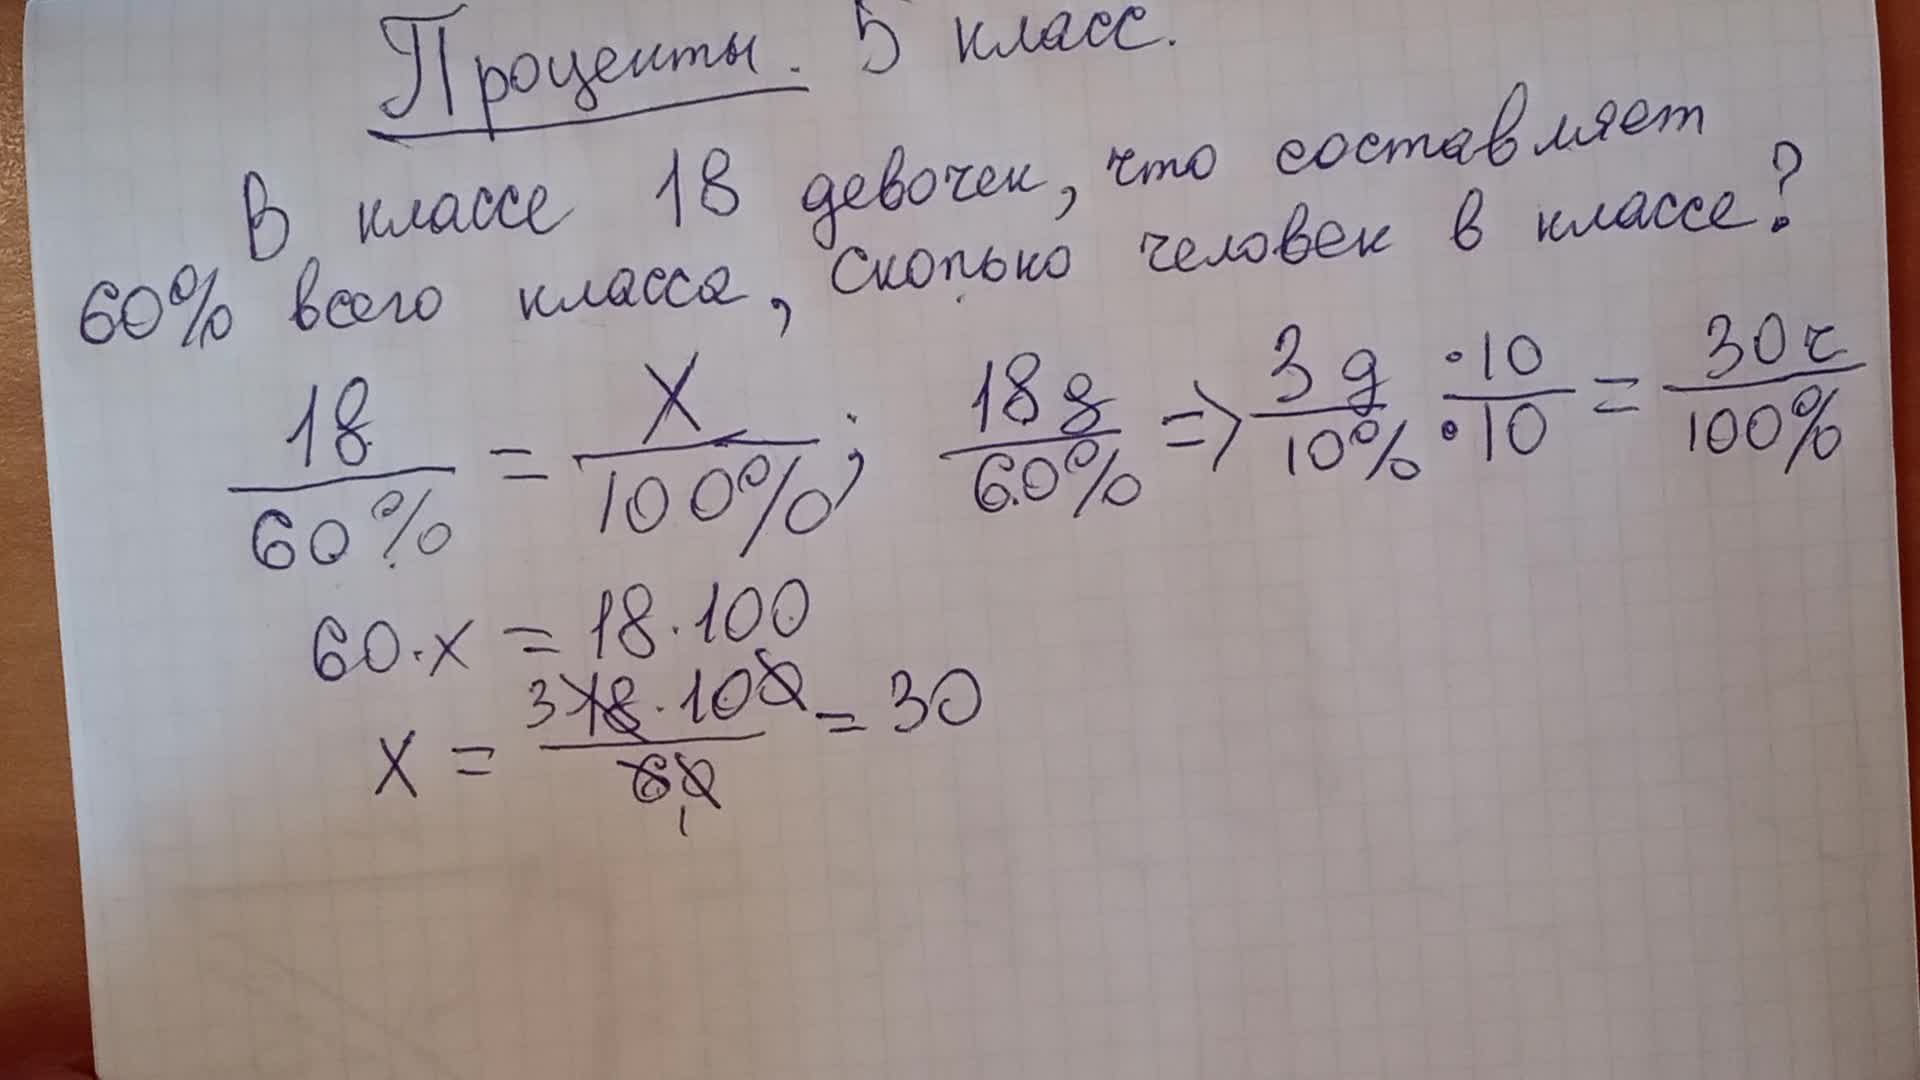 Проценты. 5 класс.
В классе 18 девочек, что составляет
60% всего класса, сколько человек в классе?
18/60% = X/100%; 18д/60% => 3д/10% ·10/·10 = 30ч/100%
60·x = 18·100
x = 3 18·100/60 1 = 30